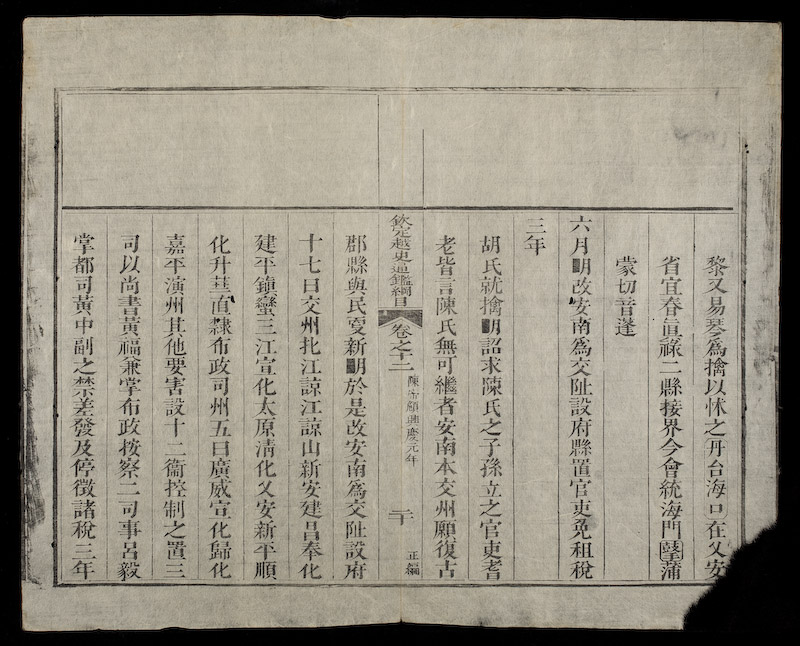 黎又易琴爲擒以怵之丹台海口在乂安
省宜春直祿二縣接界今會統海門䃔蒲
蒙切音蓬
六月明改安南爲交阯設府縣置官吏免租稅
三年
胡氏就擒明詔求陳氏之子孫立之官吏耆
老皆言陳氏無可繼者安南本交州願復古
欽定越史通鑑綱目 卷之十二 陳簡定帝興慶元年 二十 正編
郡縣與民更新明於是改安南爲交阯設府
十七曰交州北江諒江諒山新安建昌奉化
建平鎮蠻三江宣化太原清化乂安新平順
化升華直隸布政司州五曰廣威宣化歸化
嘉平演州其他要害設十二衞控制之置三
司以尚書黃福兼掌布政按察二司事呂毅
掌都司黃中副之禁差發及停徵諸稅三年